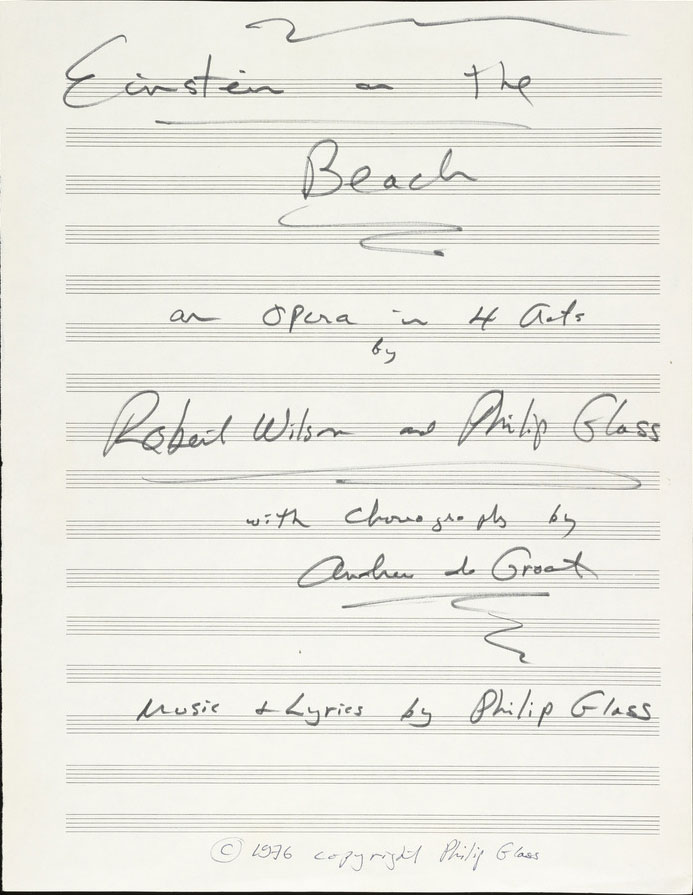 Einstein on The
Beach
an opera in 4 Acts
by
Robert Wilson and Philip Glass
with choreography by
Andrew de Groat
Music + Lyrics by Philip Glass
© 1976 copyright Philip Glass